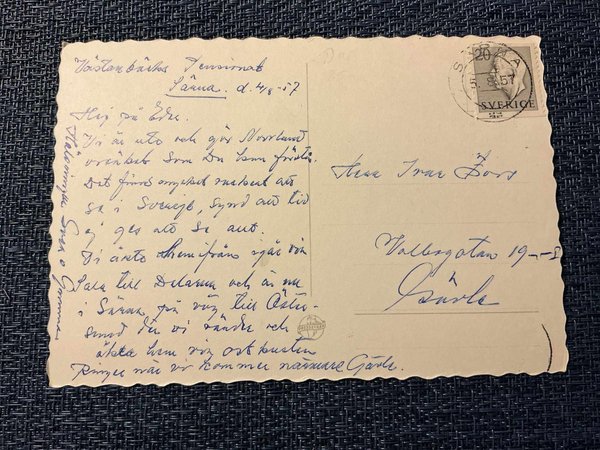 Västanbäcks Pensionat
Särna. d. 4/8-57
Hej på Er.
Vi är ute och gör Norrland
osäkert som Du kan förstå.
Det finns mycket vackert att
se i Sverige, synd att tid
ej ges att se allt.
Vi åkte hemifrån igår via
Sala till Dalarna och är nu
i Särna, på väg till Öster-
sund där vi vänder och
åka hem via ostkusten
Ringer när vi kommer närmare Gävle.
Hälsningar Sven o
Herr Ivar
Valbogatan 19
Gävle
20
57
SVERIGE